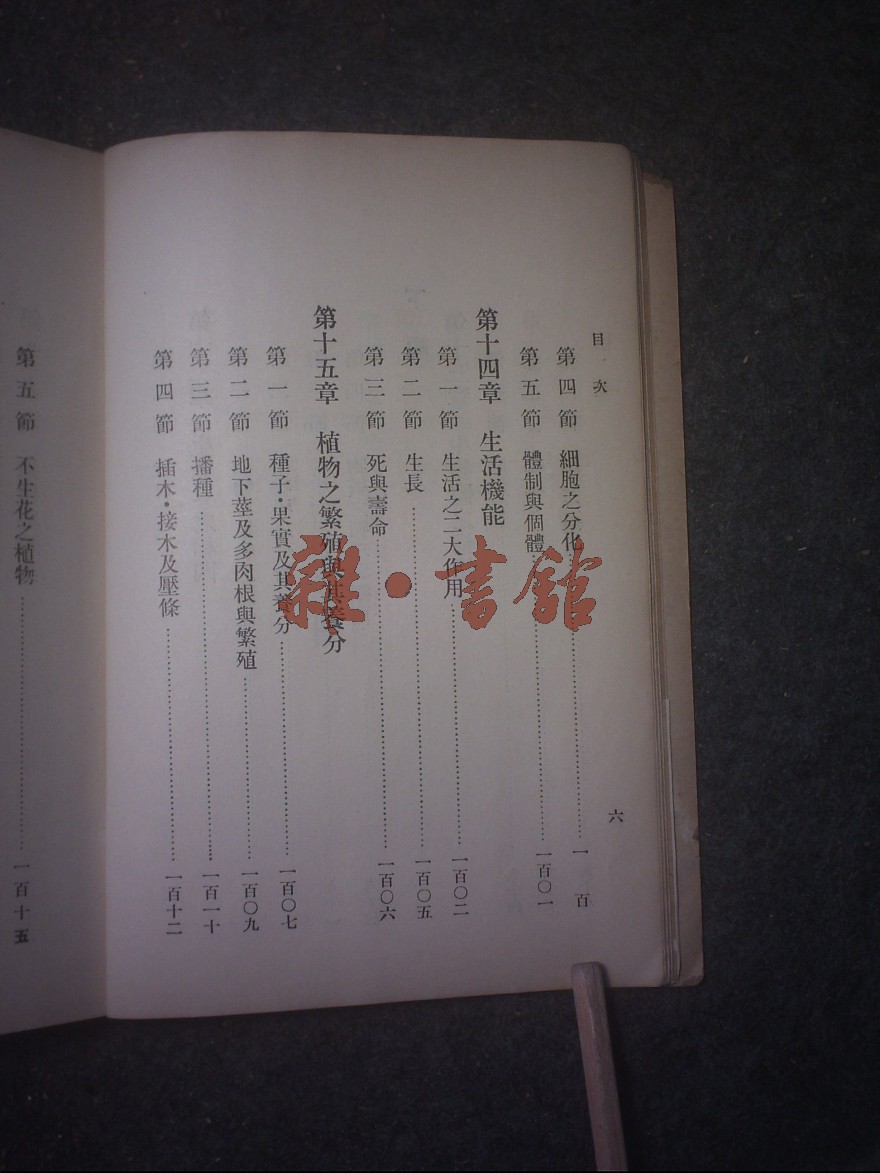 目次
六
第四節 細胞之分化……一百
第五節 體制與個體……一百〇一
第十四章 生活機能
第一節 生活之二大作用……一百〇二
第二節 生長……一百〇五
第三節 死與壽命……一百〇六
第十五章 植物之繁殖與其養分
第一節 種子·果實及其養分……一百〇七
第二節 地下莖及多肉根與繁殖……一百〇九
第三節 播種……一百一十
第四節 插木·接木及壓條……一百十二
第五節 不生花之植物……一百十五
雜·書館